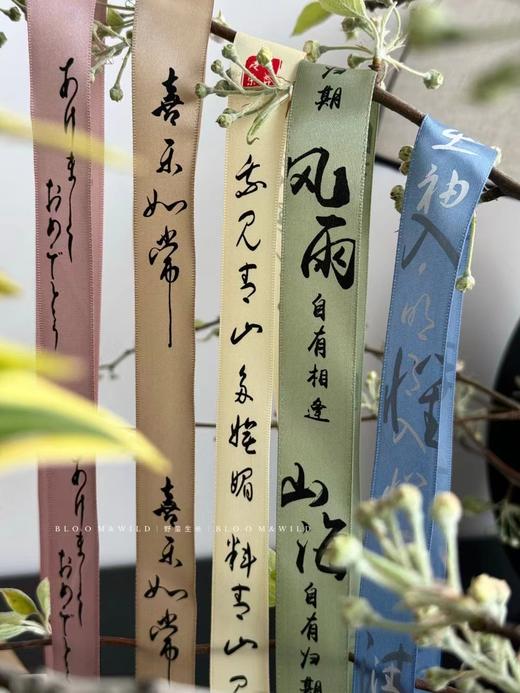 あけまして
おめでとう
あけまして
おめでとう
喜乐如常
喜乐如常
我见青山多妩媚 料青山见
归期
风雨
自有相逢
山海
自有归期
袖
BLOOM&WILD | 野蛮生长 | BLOOM&WILD